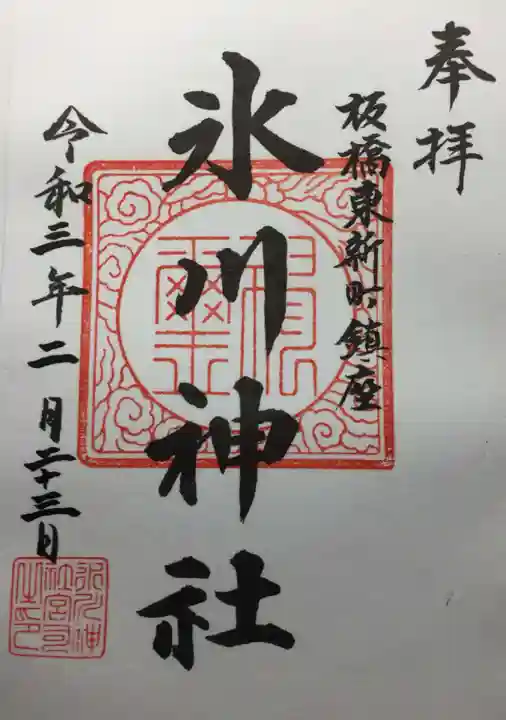 奉拝
板橋東新町鎮座
氷川神社
令和三年二月二十三日
氷川神社宮司之印